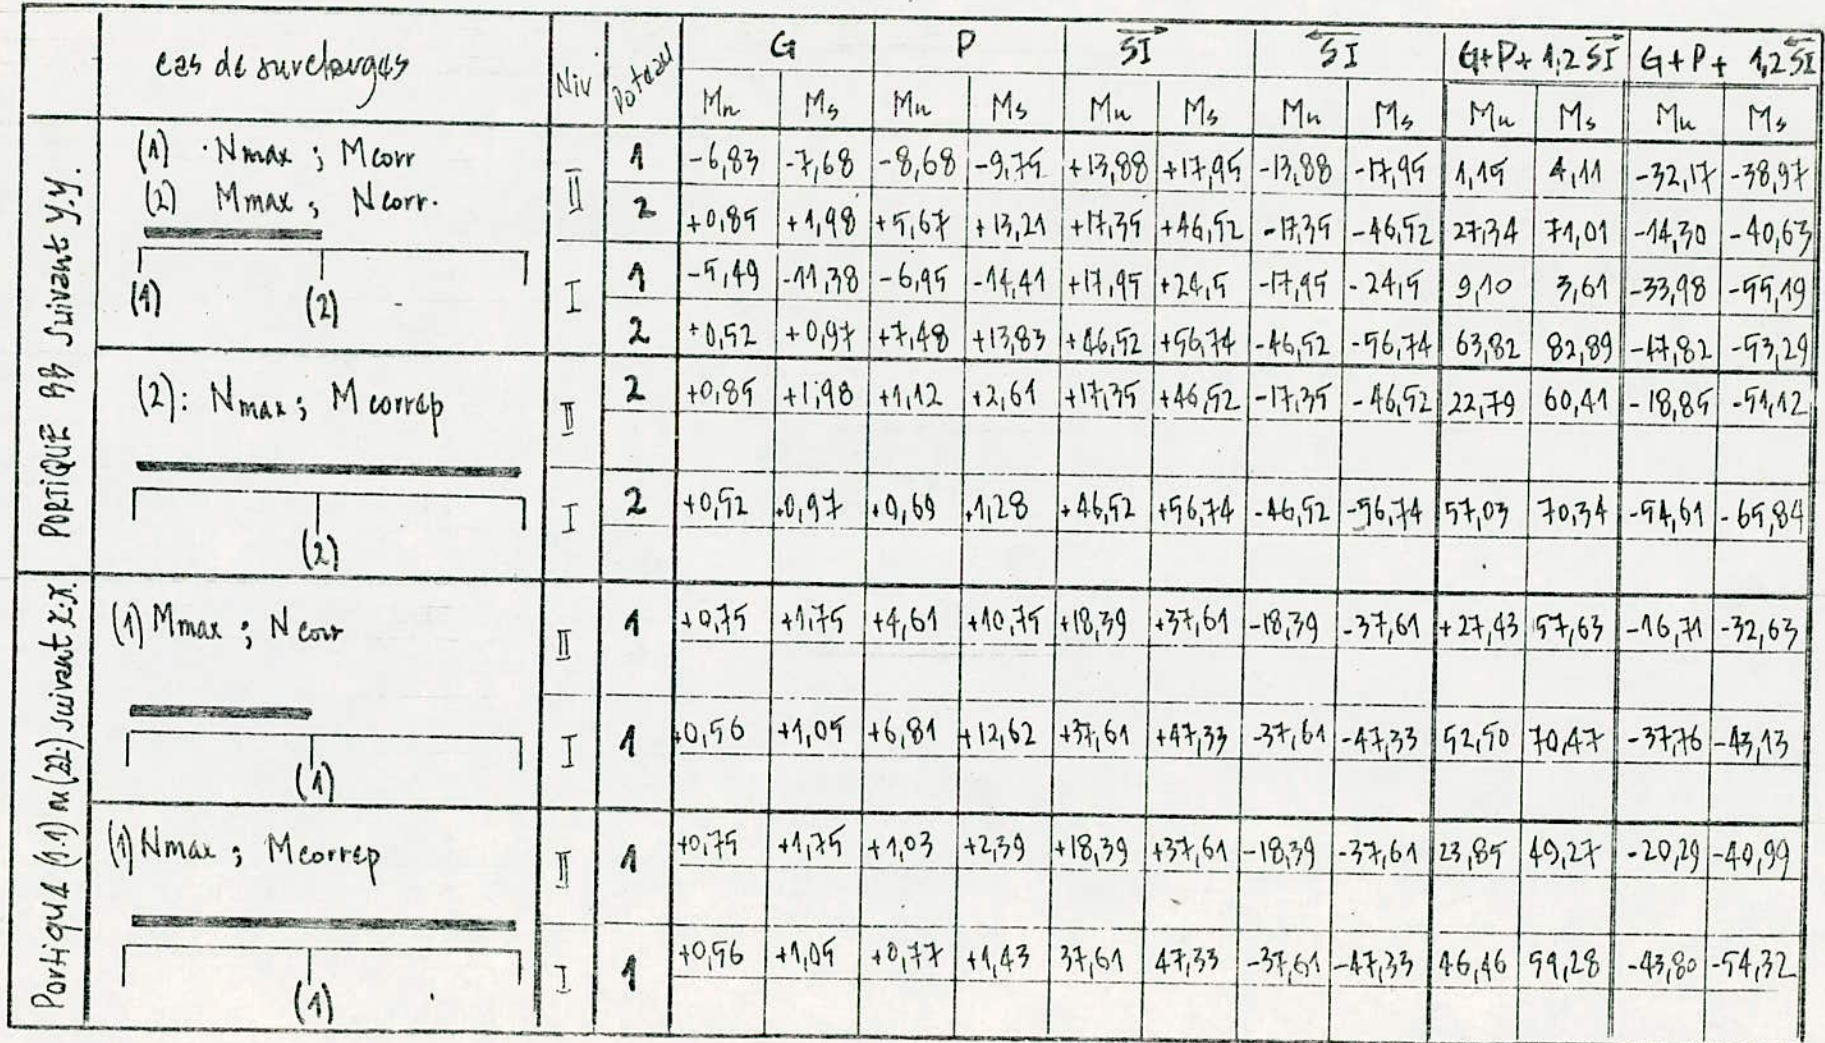 cas de surcharges | Niv. | Poteau | G | P | SI→ | SI← | G+P+1,2SI→ | G+P+1,2SI←
Mn | Ms | Mn | Ms | Mn | Ms | Mn | Ms | Mn | Ms | Mn | Ms
PORTIQUE BB suivant y.y.
(1) Nmax ; Mcorr
(2) Mmax ; Ncorr.
(1) (2)
II | 1 | -6,83 | -7,68 | -8,68 | -9,75 | +13,88 | +17,95 | -13,88 | -17,95 | 1,15 | 4,11 | -32,17 | -38,97
2 | +0,85 | +1,98 | +5,67 | +13,21 | +17,35 | +46,52 | -17,35 | -46,52 | 27,34 | 71,01 | -14,30 | -40,63
I | 1 | -5,49 | -11,38 | -6,95 | -14,41 | +17,95 | +24,5 | -17,95 | -24,5 | 9,10 | 3,61 | -33,98 | -55,19
2 | +0,52 | +0,97 | +7,48 | +13,83 | +46,52 | +56,74 | -46,52 | -56,74 | 63,82 | 82,89 | -47,82 | -53,29
(2): Nmax ; Mcorrep
(2)
II | 2 | +0,85 | +1,98 | +1,12 | +2,61 | +17,35 | +46,52 | -17,35 | -46,52 | 22,79 | 60,41 | -18,85 | -51,12
I | 2 | +0,52 | +0,97 | +0,69 | +1,28 | +46,52 | +56,74 | -46,52 | -56,74 | 57,03 | 70,34 | -54,61 | -65,84
Portique (1.1) ou (22) suivant x.x.
(1) Mmax ; Ncorr
(1)
II | 1 | +0,75 | +1,75 | +4,61 | +10,75 | +18,39 | +37,61 | -18,39 | -37,61 | +27,43 | 57,63 | -16,71 | -32,63
I | 1 | +0,56 | +1,05 | +6,81 | +12,62 | +37,61 | +47,33 | -37,61 | -47,33 | 52,50 | 70,47 | -37,76 | -43,13
(1) Nmax ; Mcorrep
(1)
II | 1 | +0,75 | +1,75 | +1,03 | +2,39 | +18,39 | +37,61 | -18,39 | -37,61 | 23,85 | 49,27 | -20,29 | -40,99
I | 1 | +0,56 | +1,05 | +0,77 | +1,43 | 37,61 | 47,33 | -37,61 | -47,33 | 46,46 | 59,28 | -43,80 | -54,32